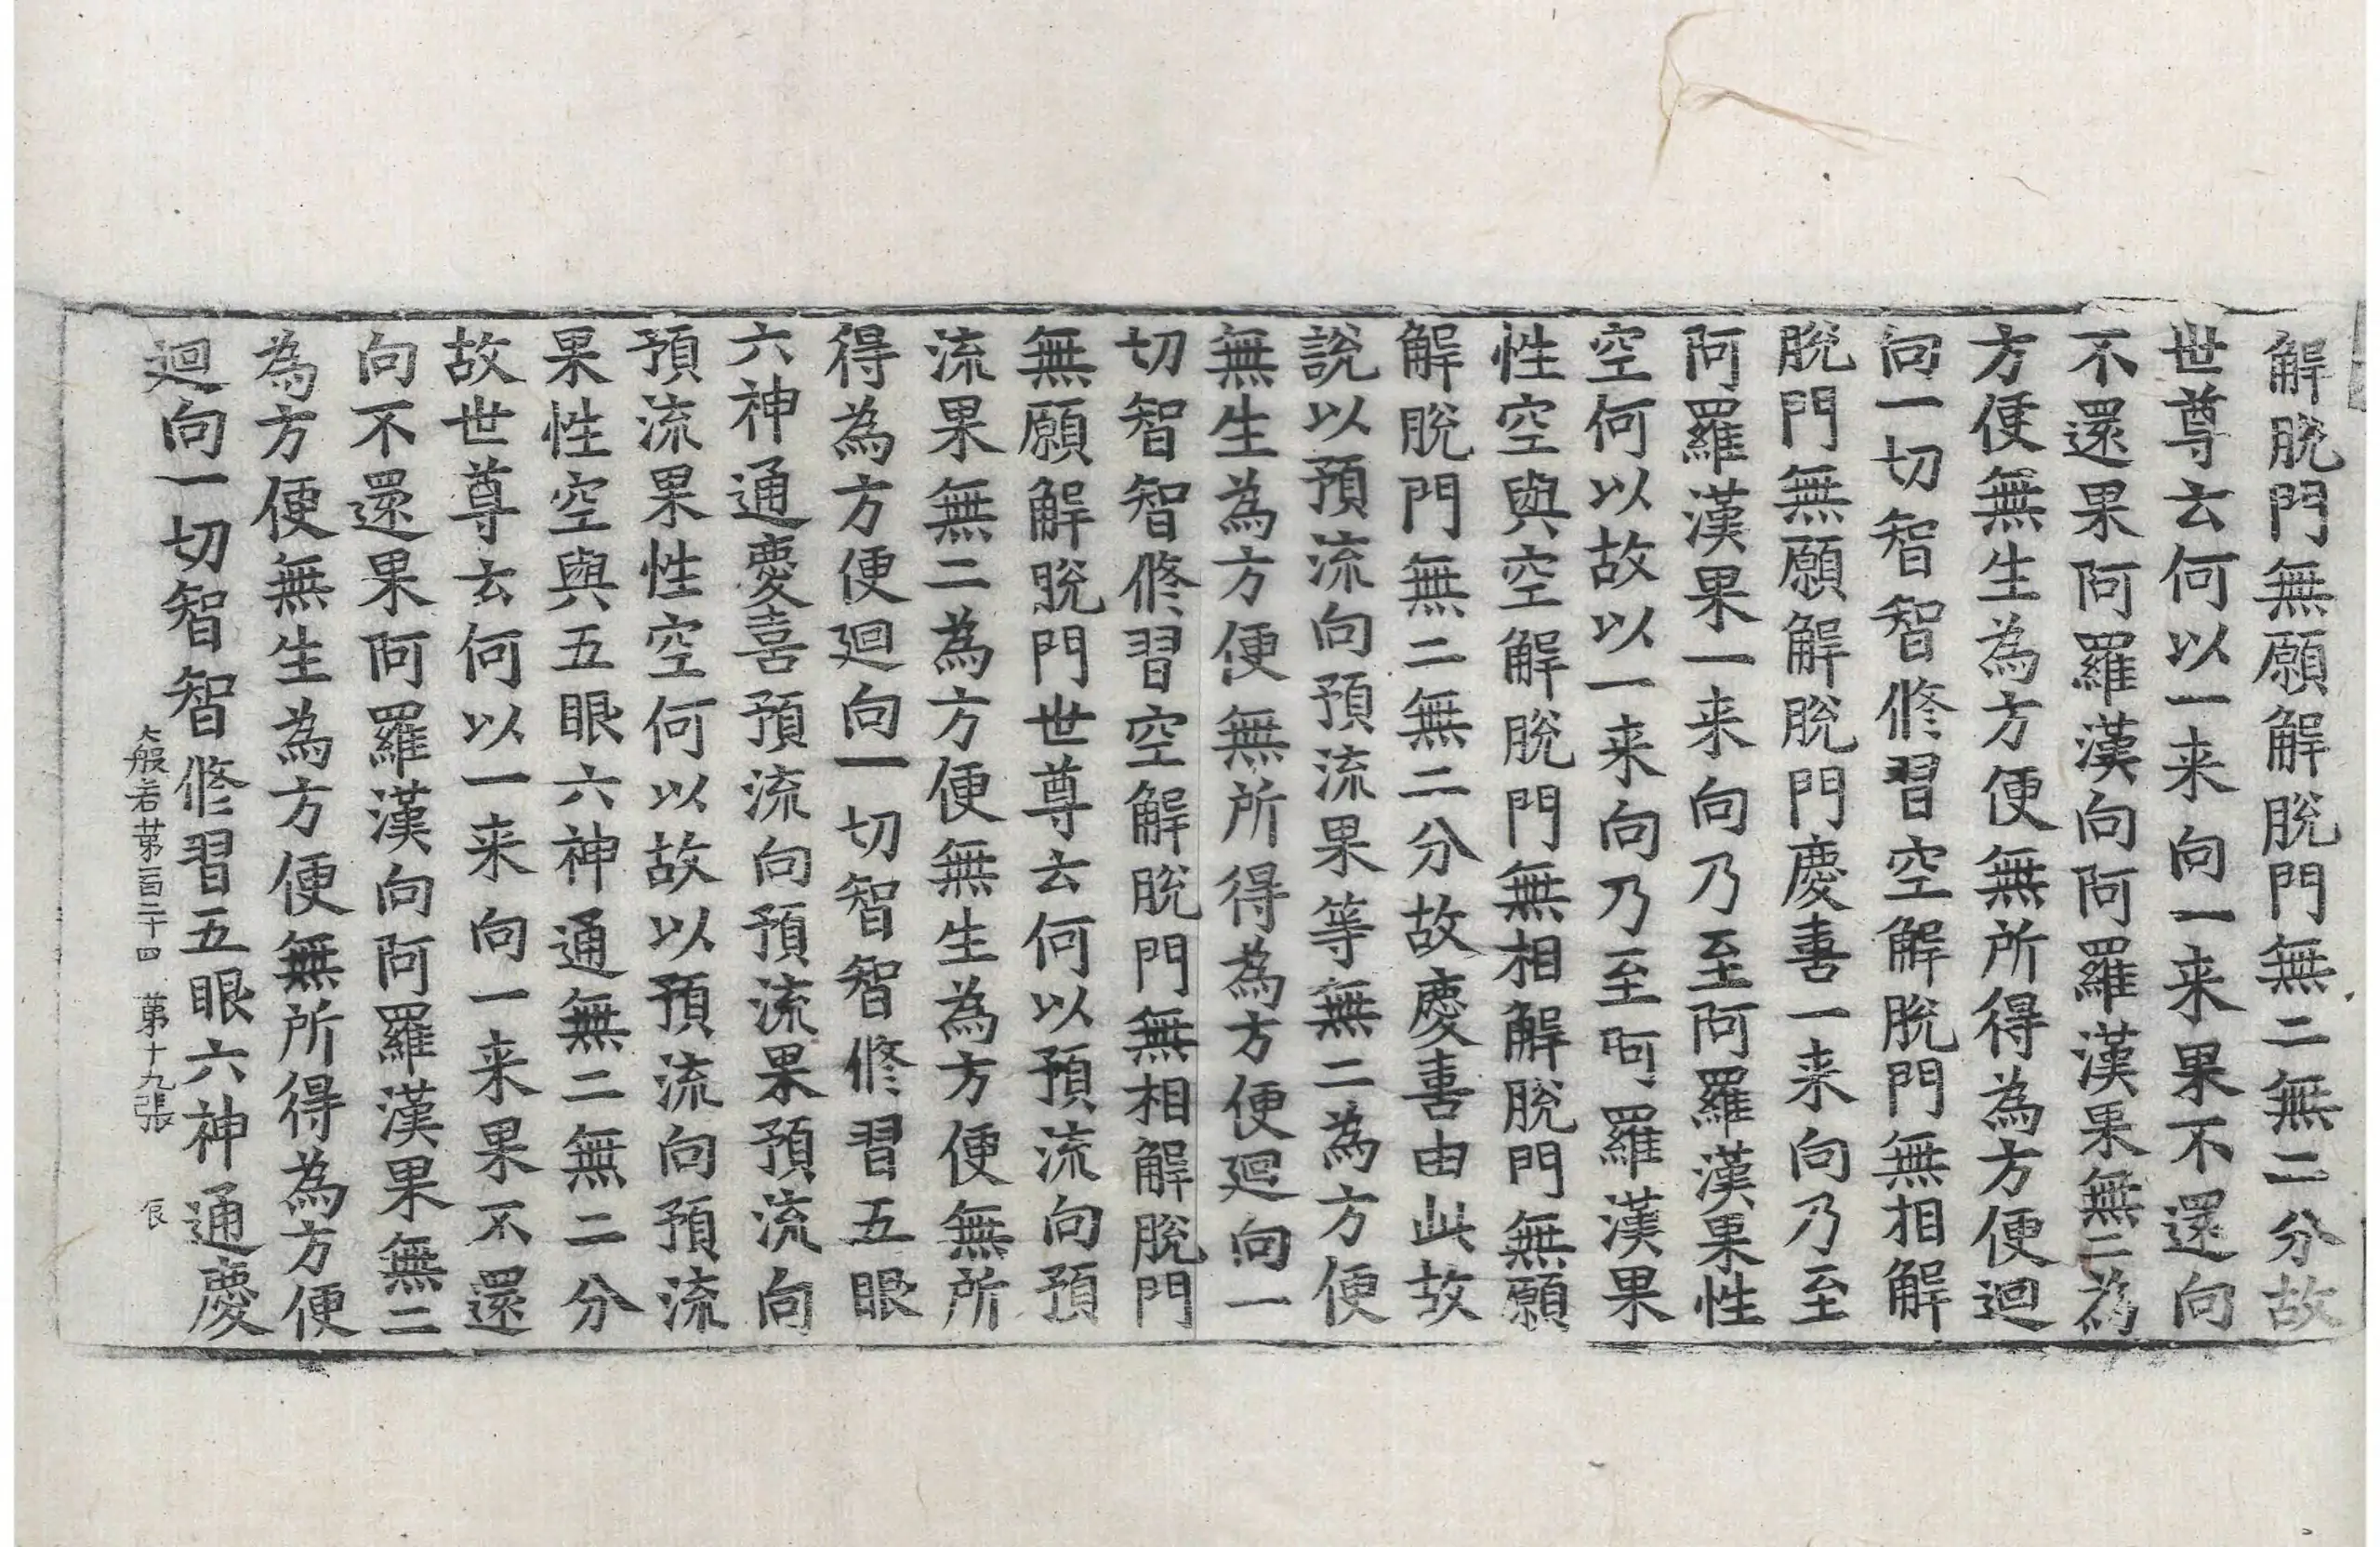 解脫門無願解脫門無二無二分故
世尊云何以一来向一来果不還向
不還果阿羅漢向阿羅漢果無二為
方便無生為方便無所得為方便迴
向一切智智修習空解脫門無相解
脫門無願解脫門慶喜一来向乃至
阿羅漢果一来向乃至阿羅漢果性
空何以故以一来向乃至阿羅漢果
性空與空解脫門無相解脫門無願
解脫門無二無二分故慶喜由此故
說以預流向預流果等無二為方便
無生為方便無所得為方便迴向一
切智智修習空解脫門無相解脫門
無願解脫門世尊云何以預流向預
流果無二為方便無生為方便無所
得為方便迴向一切智智修習五眼
六神通慶喜預流向預流果預流向
預流果性空何以故以預流向預流
果性空與五眼六神通無二無二分
故世尊云何以一来向一来果不還
向不還果阿羅漢向阿羅漢果無二
為方便無生為方便無所得為方便
迴向一切智智修習五眼六神通慶
大般若第一百二十四 第十九張 辰